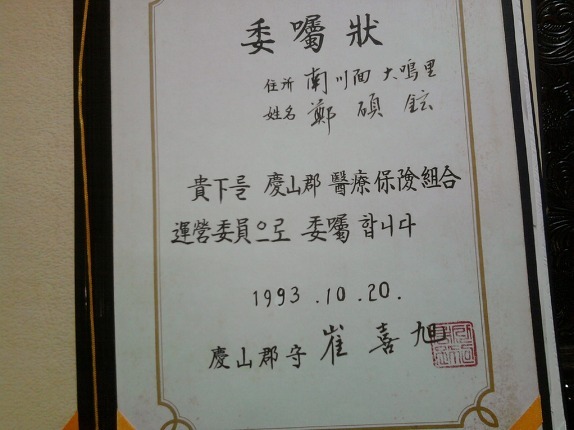 委囑狀
住所 南川面 大鳴里
姓名 鄭碩鉉
貴下를 慶山郡 醫療保險組合
運營委員으로 委囑합니다
1993.10.20.
慶山郡守 崔喜旭